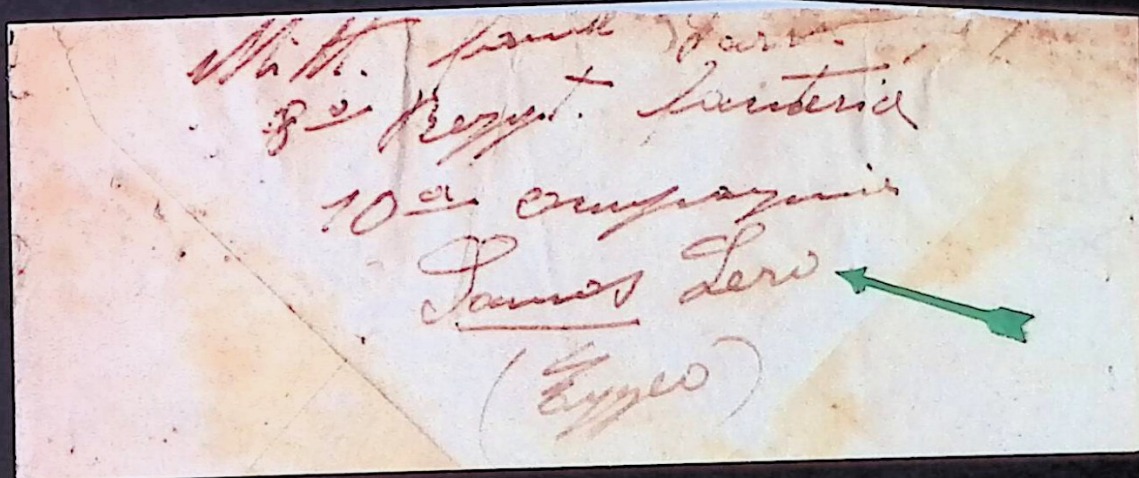 Mitt.
8º Reggt. fanteria
10ª compagnia
Samos Lero
(Eggeo)